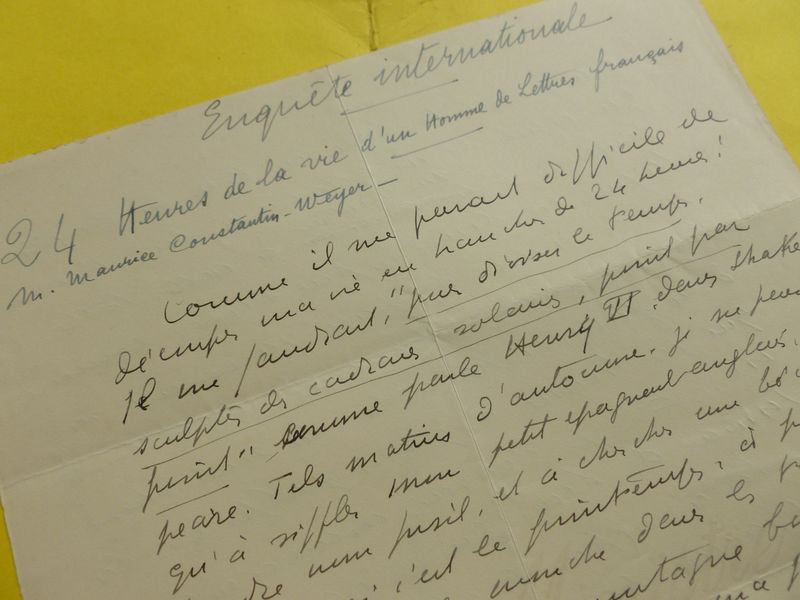 Enquête internationale
24 Heures de la vie d'un Homme de Lettres français
M. Maurice Constantin-Weyer
Comme il me parait difficile de
découper ma vie en tranches de 24 heures !
Il me faudrait, "pour diviser le temps,
sculpter des cadrans solaires, point par
point" comme parle Henry VI dans Shakes
peare. Tels matins d'automne, je ne pense
qu'à siffler mon petit épagneul anglais,
mon fusil, et à chercher une
c'est le printemps, à
mouche dans les